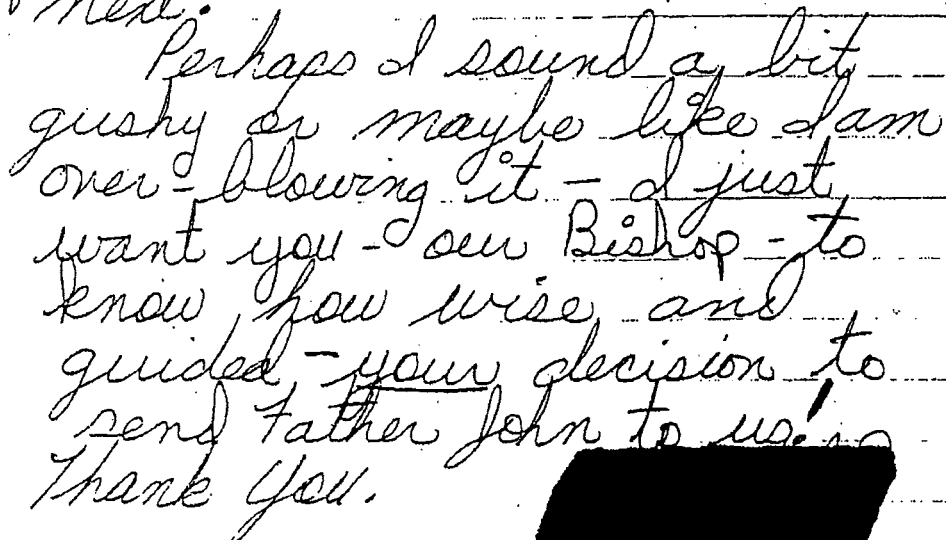 next.
Perhaps I sound a bit
gushy or maybe like I am
over-blowing it - I just
want you - our Bishop - to
know how wise and
guided - your decision to
send Father John to us!
Thank You.